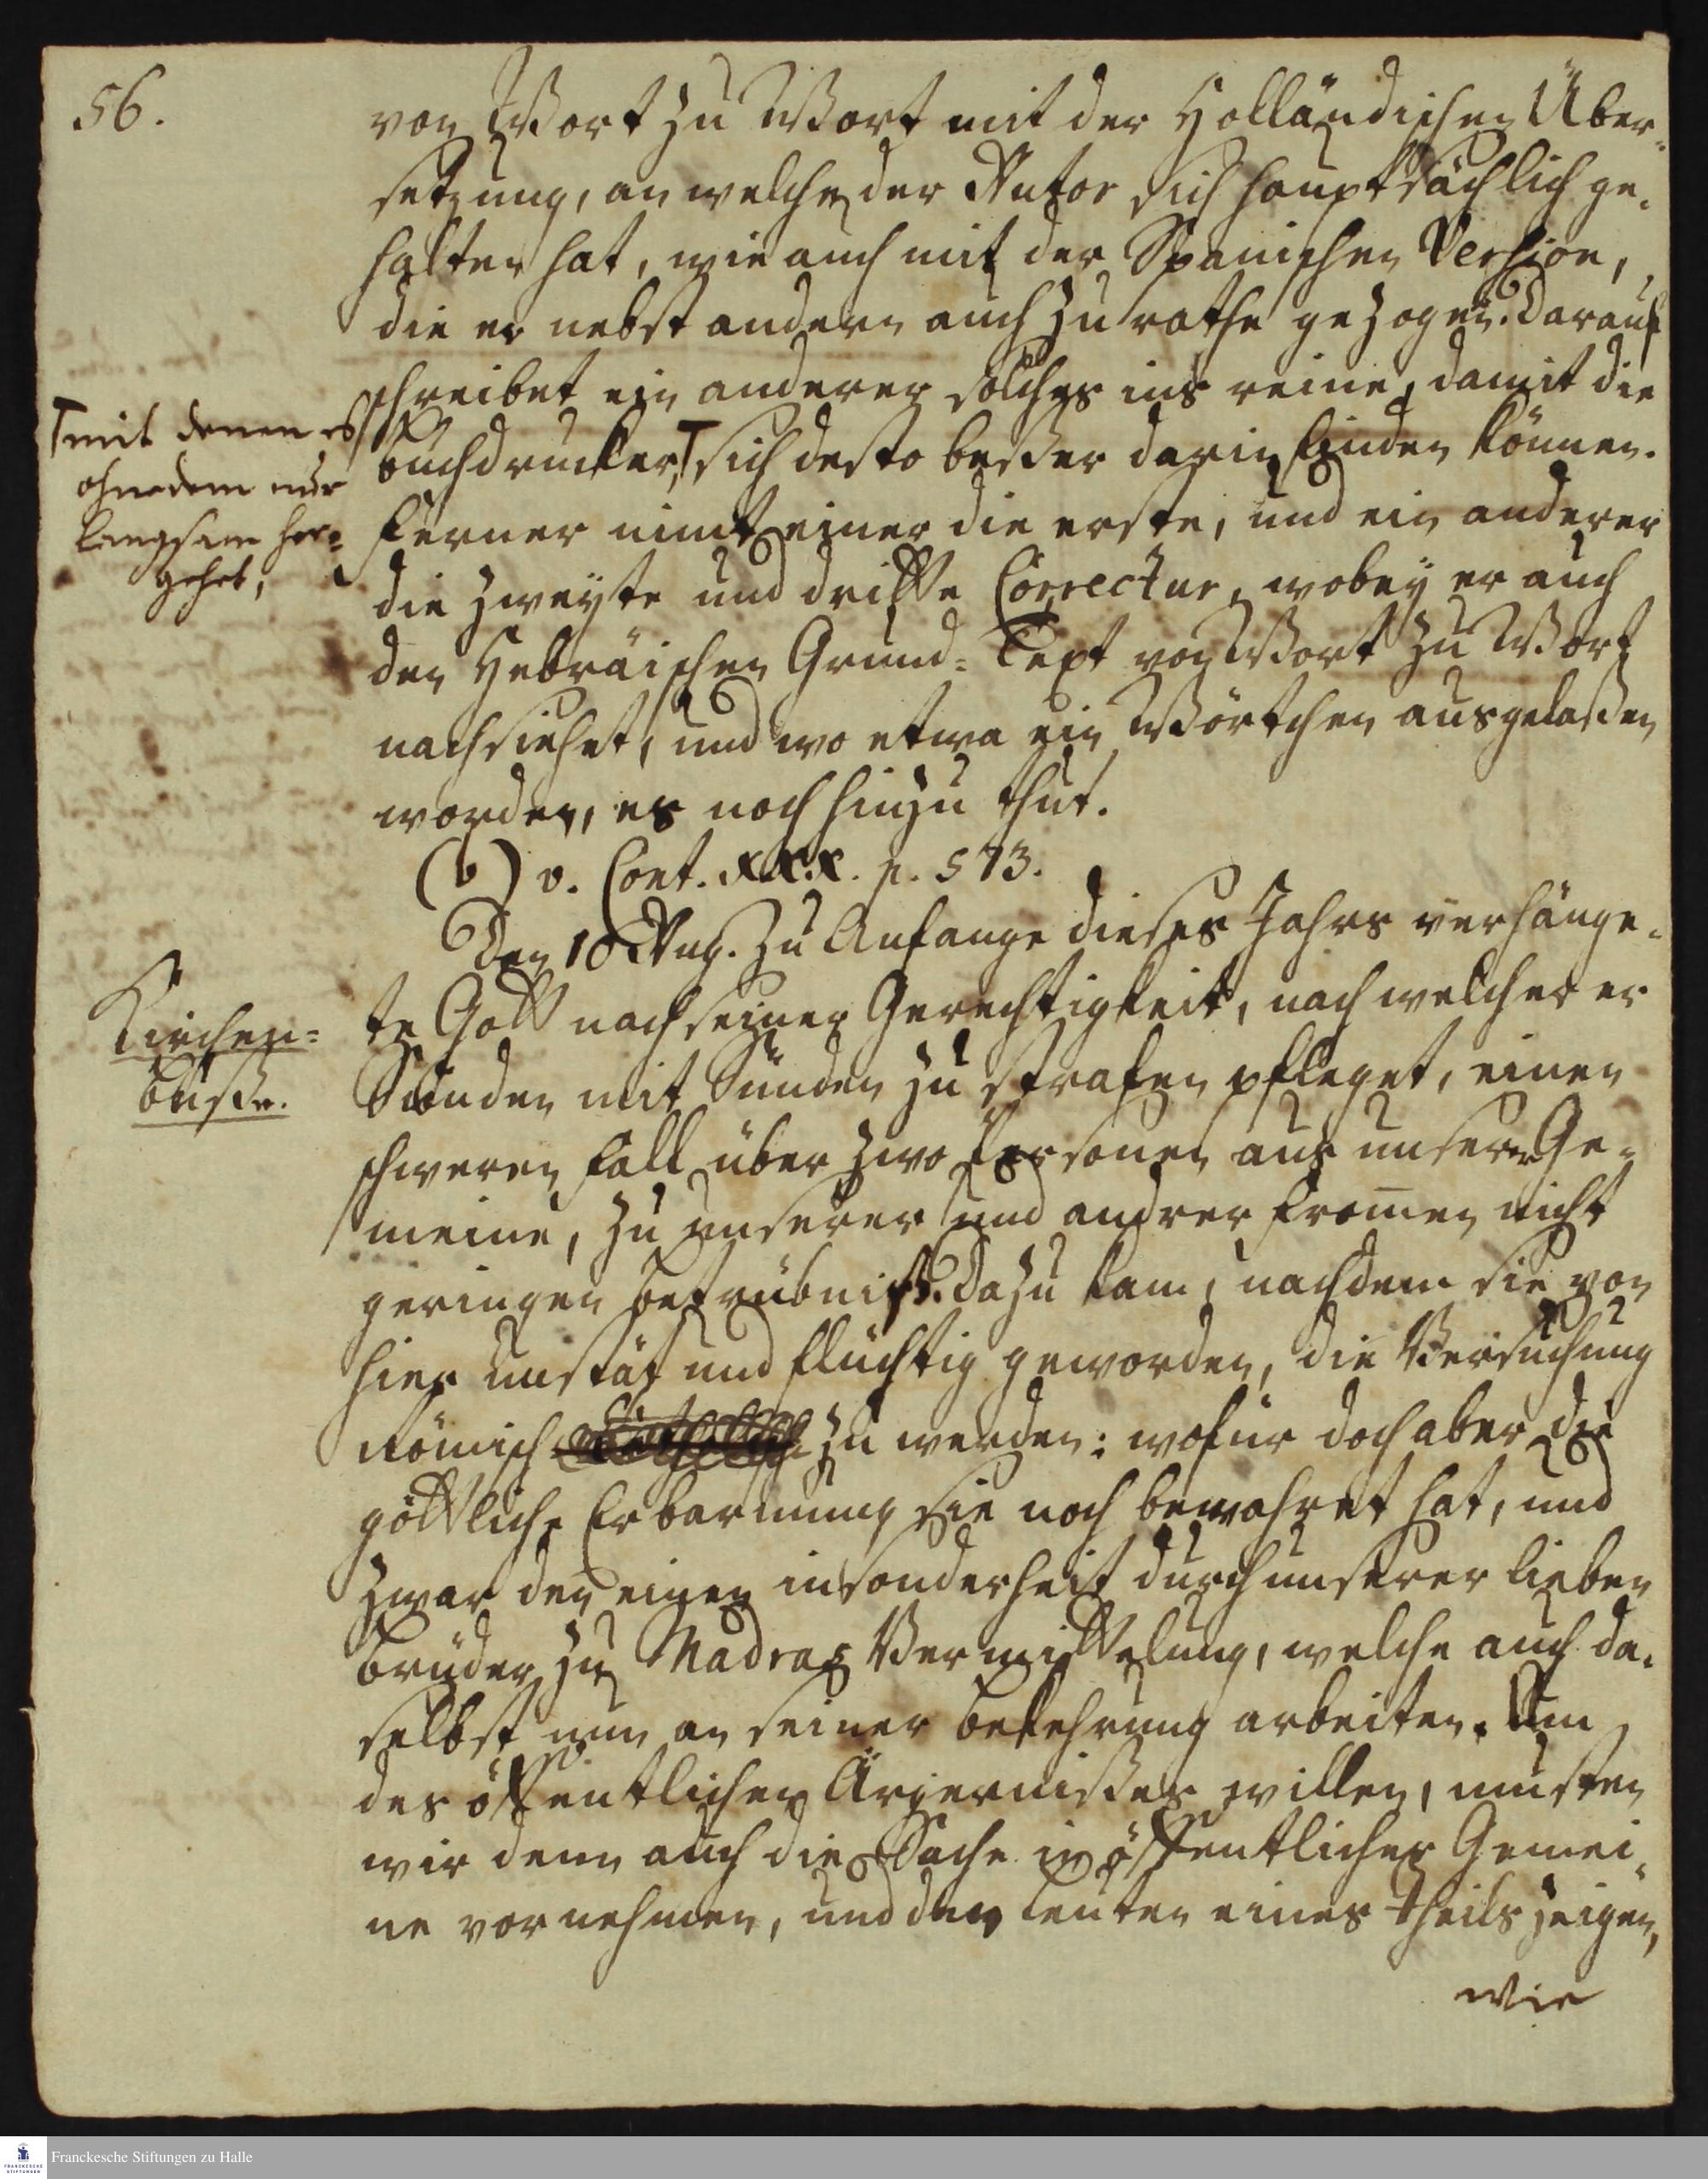 56.
von Wort zu Wort mit der Holländischen Über-
setzung, an welche der Autor sich hauptsächlich ge-
halten hat, wie auch mit der Spanischen Version,
die er nebst andern auch zu rathe gezogen. Darauf
schreibet ein anderer solches ins reine, damit die
Buchdrucker, sich desto beßer darin finden können.
mit denen es
ohnedem nur
langsam her-
gehet,
Ferner nimt einer die erste, und ein anderer
die zweyte und dritte Correctur, wobey er auch
den Hebräischen Grund-Text von Wort zu Wort
nachsiehet, und wo etwa ein Wörtchen ausgelaßen
worden, es noch hinzu thut.
(b) v. Cont. XXX. p. 573.
Den 10 Aug. zu Anfange dieses Jahrs verhänge-
Kirchen-
Buße.
te Gott nach seiner Gerechtigkeit, nach welcher er
Sünden mit Sünden zu strafen pfleget, einen
schweren Fall über zwo Personen aus unserer Ge-
meine, zu unserer und andrer Fromen nicht
geringen Betrübniß. Dazu kam, nachdem sie von
hier unstät und flüchtig geworden, die Versuchung
Römisch zu werden: wofür doch aber die
göttliche Erbarmung sie noch bewahret hat, und
zwar den einen insonderheit durch unserer lieben
Brüder zu Madras Vermittelung, welche auch da-
selbst nun an seiner Bekehrung arbeiten. Um
des öffentlichen Ärgernißes willen, musten
wir denn auch die Sache in öffentlicher Gemei-
ne vornehmen, und den Leuten eines theils zeigen,
wie
Franckesche Stiftungen zu Halle